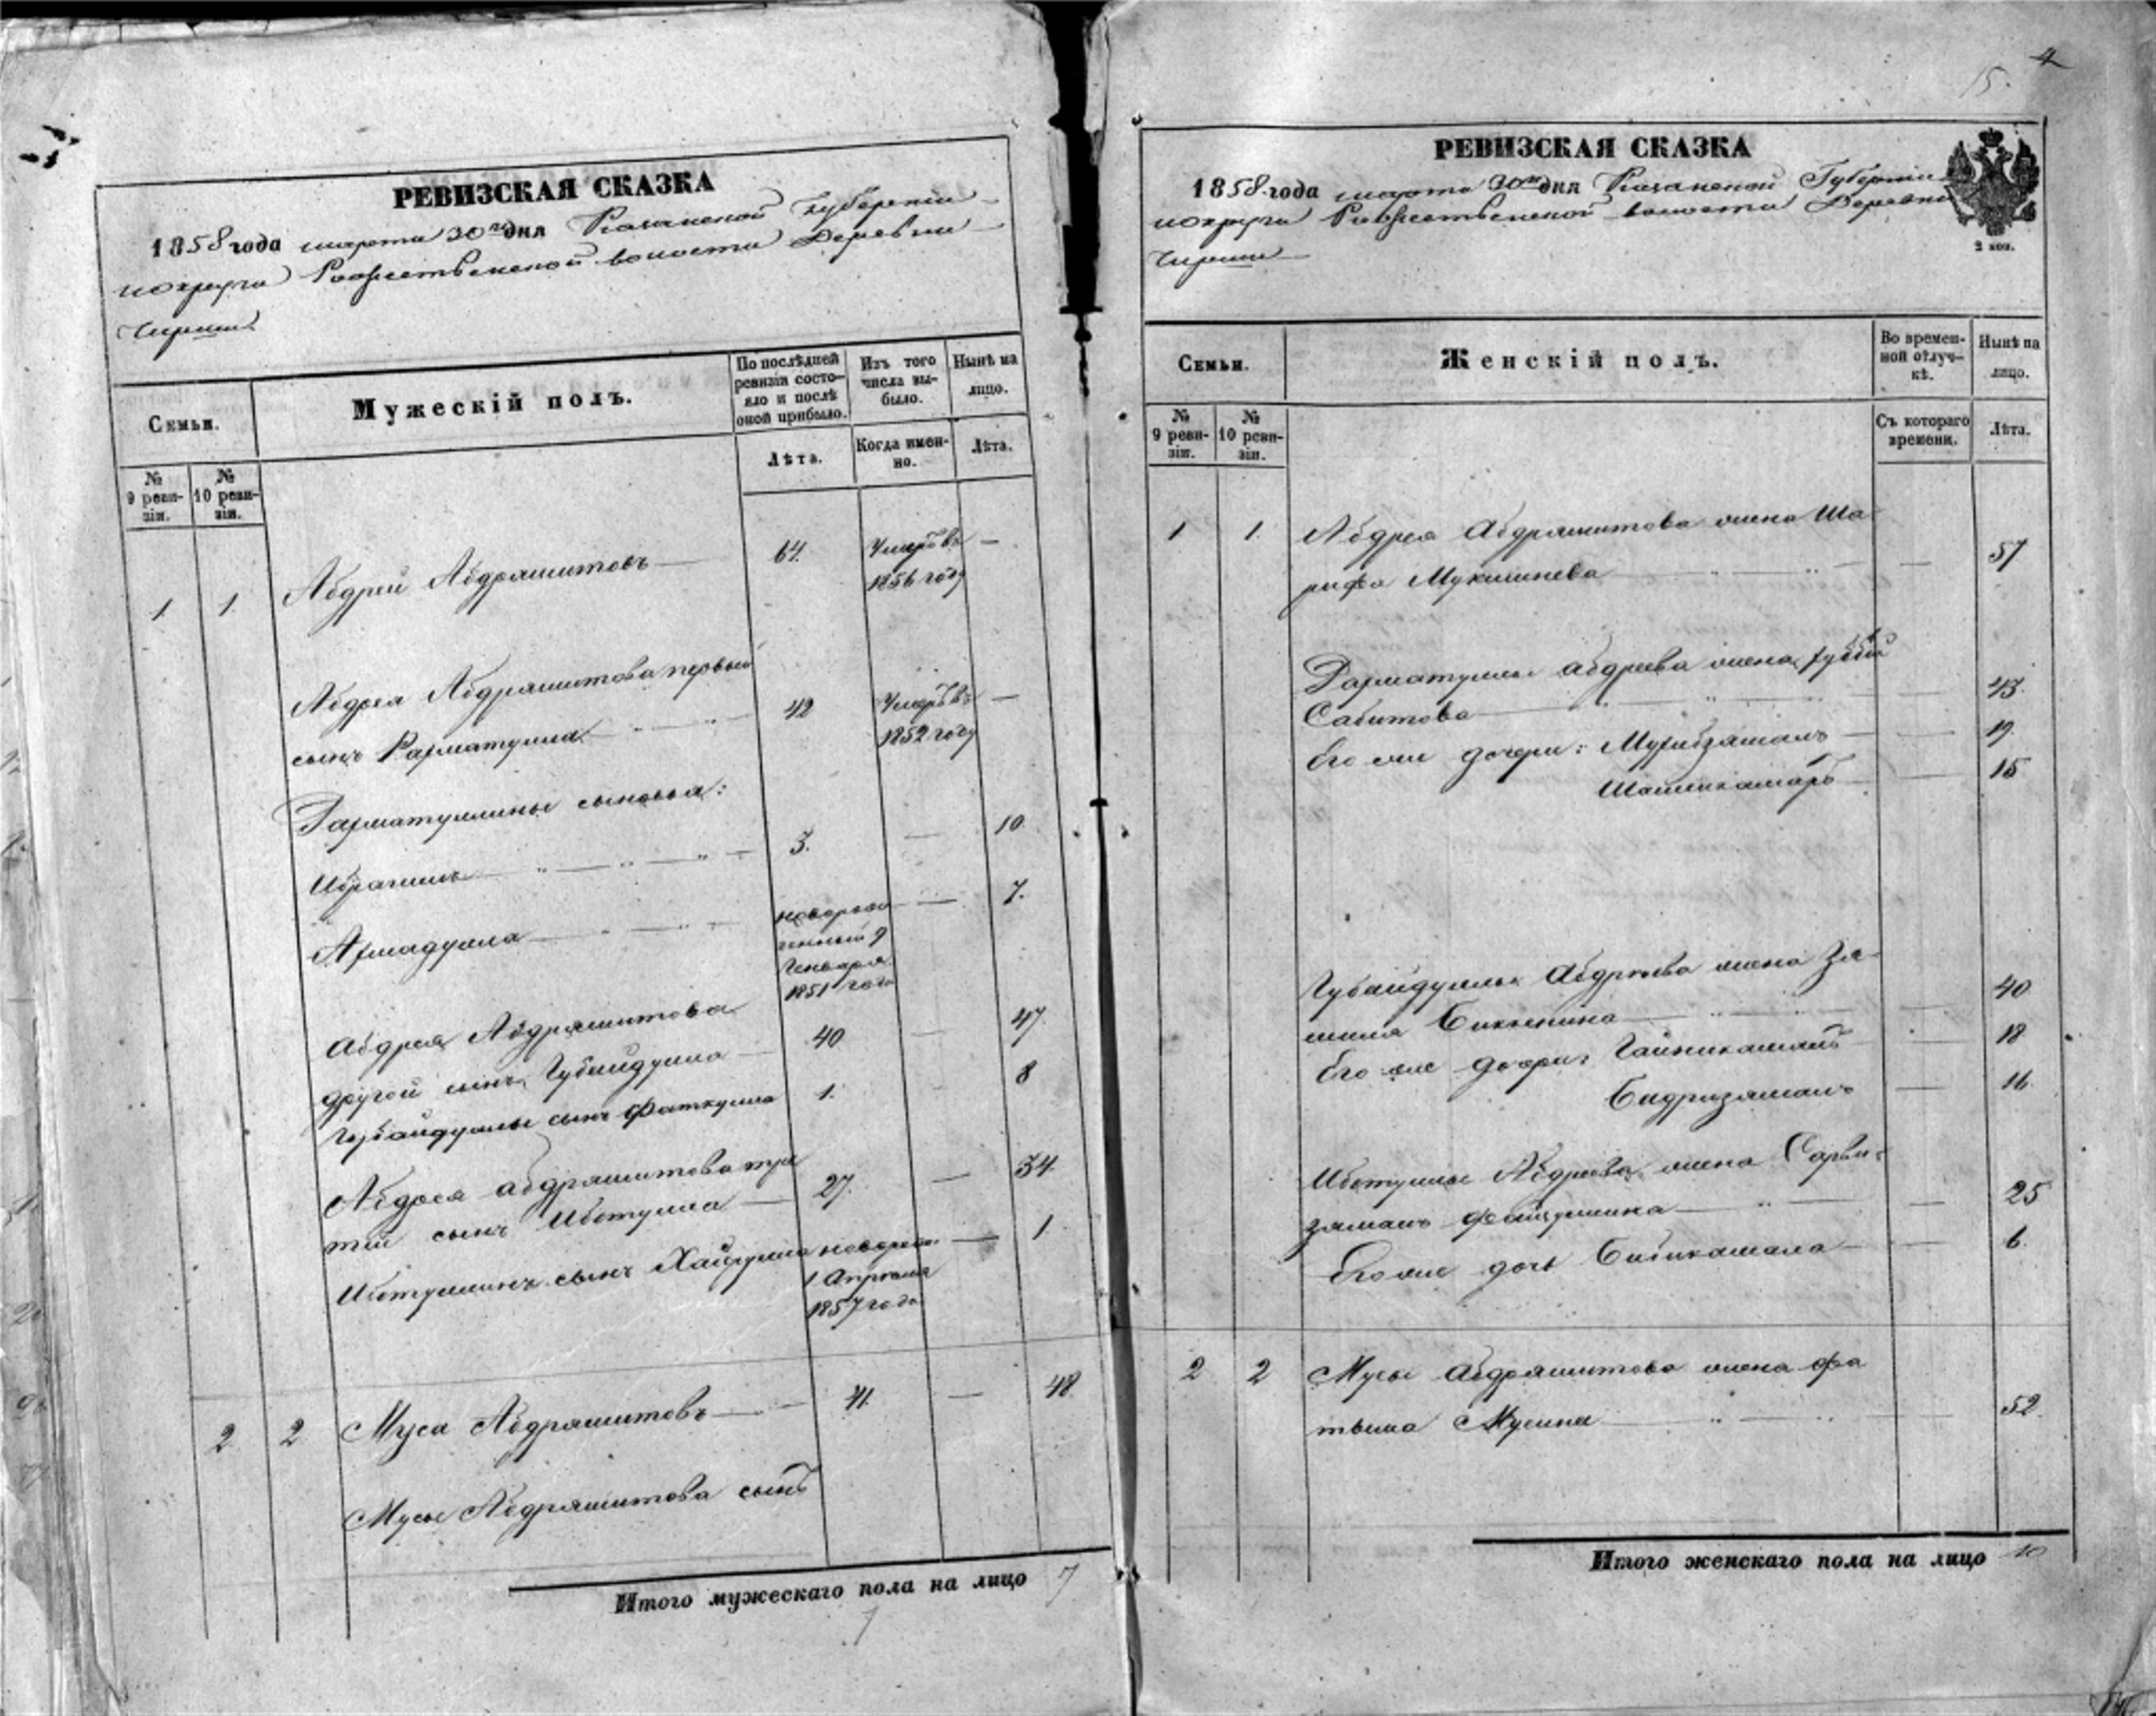 РЕВИЗСКАЯ СКАЗКА
1858 года марта 30го дня Казанской Губернии
и округи Рожественской волости Деревни
Чирши
Семьи.
Мужескій полъ.
По послѣдней ревизіи состояло и послѣ оной прибыло.
Изъ того числа выбыло.
Нынѣ на лицо.
№ 9 ревизіи.
№ 10 ревизіи.
Лѣта.
Когда именно.
Лѣта.
1 1 Абдрей Абдряшитовъ 64. Умеръ въ —
1856 году
Абдрея Абдряшитова первый
сынъ Рахматулла 42 Умеръ въ —
1852 году
Рахматуллины сыновья:
Ибрагимъ 3. — 10.
Ахмадулла новорож — 7.
денный 9
Генваря
1851 года
Абдрея Абдряшитова
другой сынъ Губайдулла 40 — 47.
Губайдуллы сынъ Фаткулла 1. — 8
Абдрея Абдряшитова тре
тій сынъ Ибетулла 27. — 34
Ибетуллинъ сынъ Хайрулла новорож. — 1
1 Апреля
1857 года
2 2 Муса Абдряшитовъ 41. — 48
Мусы Абдряшитова сынъ
Итого мужескаго пола на лицо 7
7
4
15.
РЕВИЗСКАЯ СКАЗКА
1858 года марта 30го дня Казанской Губернии
и округи Рожественской волости Деревни
Чирши
2 коп.
Семьи.
Женскій полъ.
Во временной отлучкѣ.
Нынѣ на лицо.
№ 9 ревизіи.
№ 10 ревизіи.
Съ котораго времени.
Лѣта.
1 1 Абдрея Абдряшитова жена Ша
рифа Мукминева — 57
Рахматуллы Абдреева жена
Сабитова — 43.
Его же дочери: — 19.
Шамсикамаръ — 15
Губайдуллы Абдреева жена Зя
Бикkенина — 40
Его же дочери: Гайникамалъ — 18
Бадризямалъ — 16
Ибетуллы Абдреева жена Сарви-
зямалъ Файзуллина — 25
Его же дочь Бибикамала — 6.
2 2 Мусы Абдряшитова жена Фа
тьима Мусина 52.
Итого женскаго пола на лицо 10